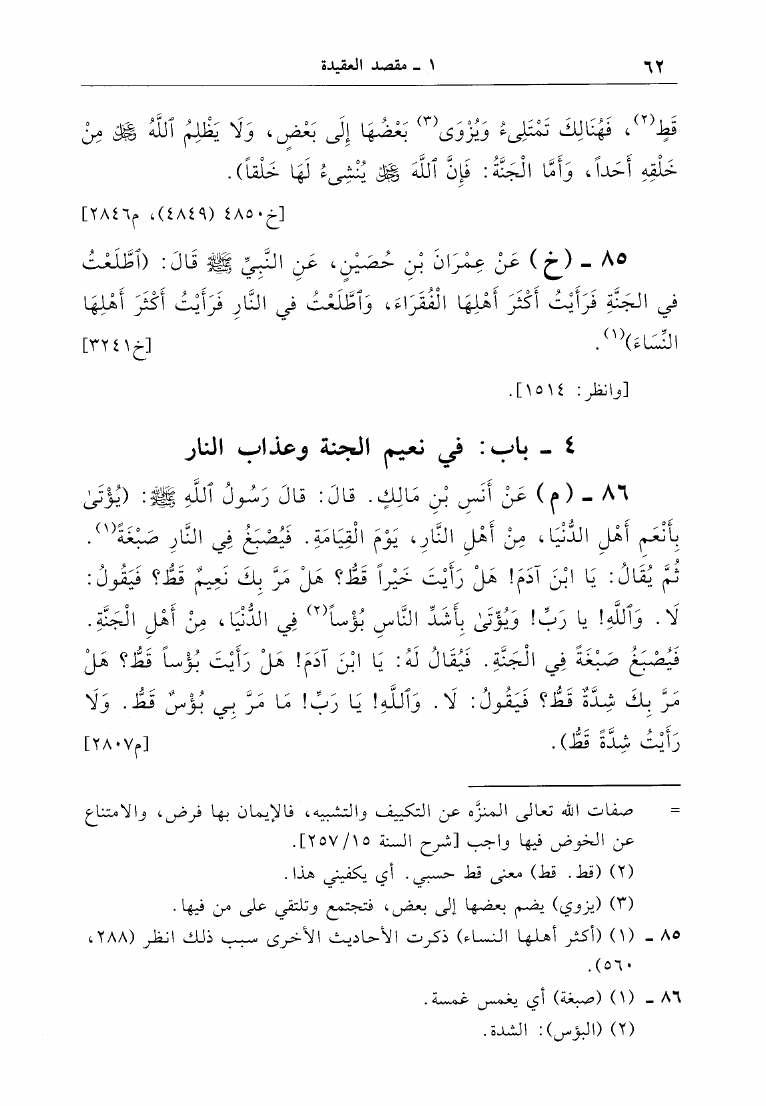 ٦٢
١ ـ مقصد العقيدة
قَطِ(٢)، فَهُنَالِكَ تَمْتَلِىءُ وَيُزْوَى(٣) بَعْضُهَا إِلَى بَعْضٍ، وَلَا يَظْلِمُ ٱللَّهُ عَزَّوَجَلَّ مِنْ
خَلْقِهِ أَحَداً، وَأَمَّا الْجَنَّةُ: فَإِنَّ ٱللَّهَ عَزَّوَجَلَّ يُنْشِىءُ لَهَا خَلْقاً).
[خ٤٨٥٠ (٤٨٤٩)، م٢٨٤٦]
٨٥ ـ (خ) عَنْ عِمْرَانَ بْنِ حُصَيْنٍ، عَنِ النَّبِيِّ ﷺ قَالَ: (ٱطَّلَعْتُ
في الجَنَّةِ فَرَأَيْتُ أَكْثَرَ أَهْلِهَا الْفُقَرَاءَ، وَٱطَّلَعْتُ في النَّارِ فَرَأَيْتُ أَكْثَرَ أَهْلِهَا
النِّسَاءَ)(١). [خ٣٢٤١]
[وانظر: ١٥١٤].
٤ ـ باب: في نعيم الجنة وعذاب النار
٨٦ ـ (م) عَنْ أَنَسِ بْنِ مَالِكٍ. قالَ: قالَ رَسُولُ ٱللَّهِ ﷺ: (يُؤْتَىٰ
بِأَنْعَمِ أَهْلِ الدُّنْيَا، مِنْ أَهْلِ النَّارِ، يَوْمَ الْقِيَامَةِ. فَيُصْبَغُ فِي النَّارِ صَبْغَةً(١).
ثُمَّ يُقَالُ: يَا ابْنَ آدَمَ! هَلْ رَأَيْتَ خَيْراً قَطُّ؟ هَلْ مَرَّ بِكَ نَعِيمٌ قَطُّ؟ فَيَقُولُ:
لَا. وَٱللَّهِ! يا رَبِّ! وَيُؤْتَىٰ بِأَشَدِّ النَّاسِ بُؤْساً(٢) فِي الدُّنْيَا، مِنْ أَهْلِ الْجَنَّةِ.
فَيُصْبَغُ صَبْغَةً فِي الْجَنَّةِ. فَيُقَالُ لَهُ: يَا ابْنَ آدَمَ! هَلْ رَأَيْتَ بُؤْساً قَطُّ؟ هَلْ
مَرَّ بِكَ شِدَّةٌ قَطُّ؟ فَيَقُولُ: لَا. وَٱللَّهِ! يَا رَبِّ! مَا مَرَّ بِي بُؤْسٌ قَطُّ. وَلَا
رَأَيْتُ شِدَّةً قَطُّ). [م٢٨٠٧]
= صفات الله تعالى المنزَّه عن التكييف والتشبيه، فالإيمان بها فرض، والامتناع
عن الخوض فيها واجب [شرح السنة ١٥/ ٢٥٧].
(٢) (قط. قط) معنى قط حسبي. أي يكفيني هذا.
(٣) (يزوي) يضم بعضها إلى بعض، فتجتمع وتلتقي على من فيها.
٨٥ ـ (١) (أكثر أهلها النساء) ذكرت الأحاديث الأخرى سبب ذلك انظر (٢٨٨،
٥٦٠).
٨٦ ـ (١) (صبغة) أي يغمس غمسة.
(٢) (البؤس): الشدة.